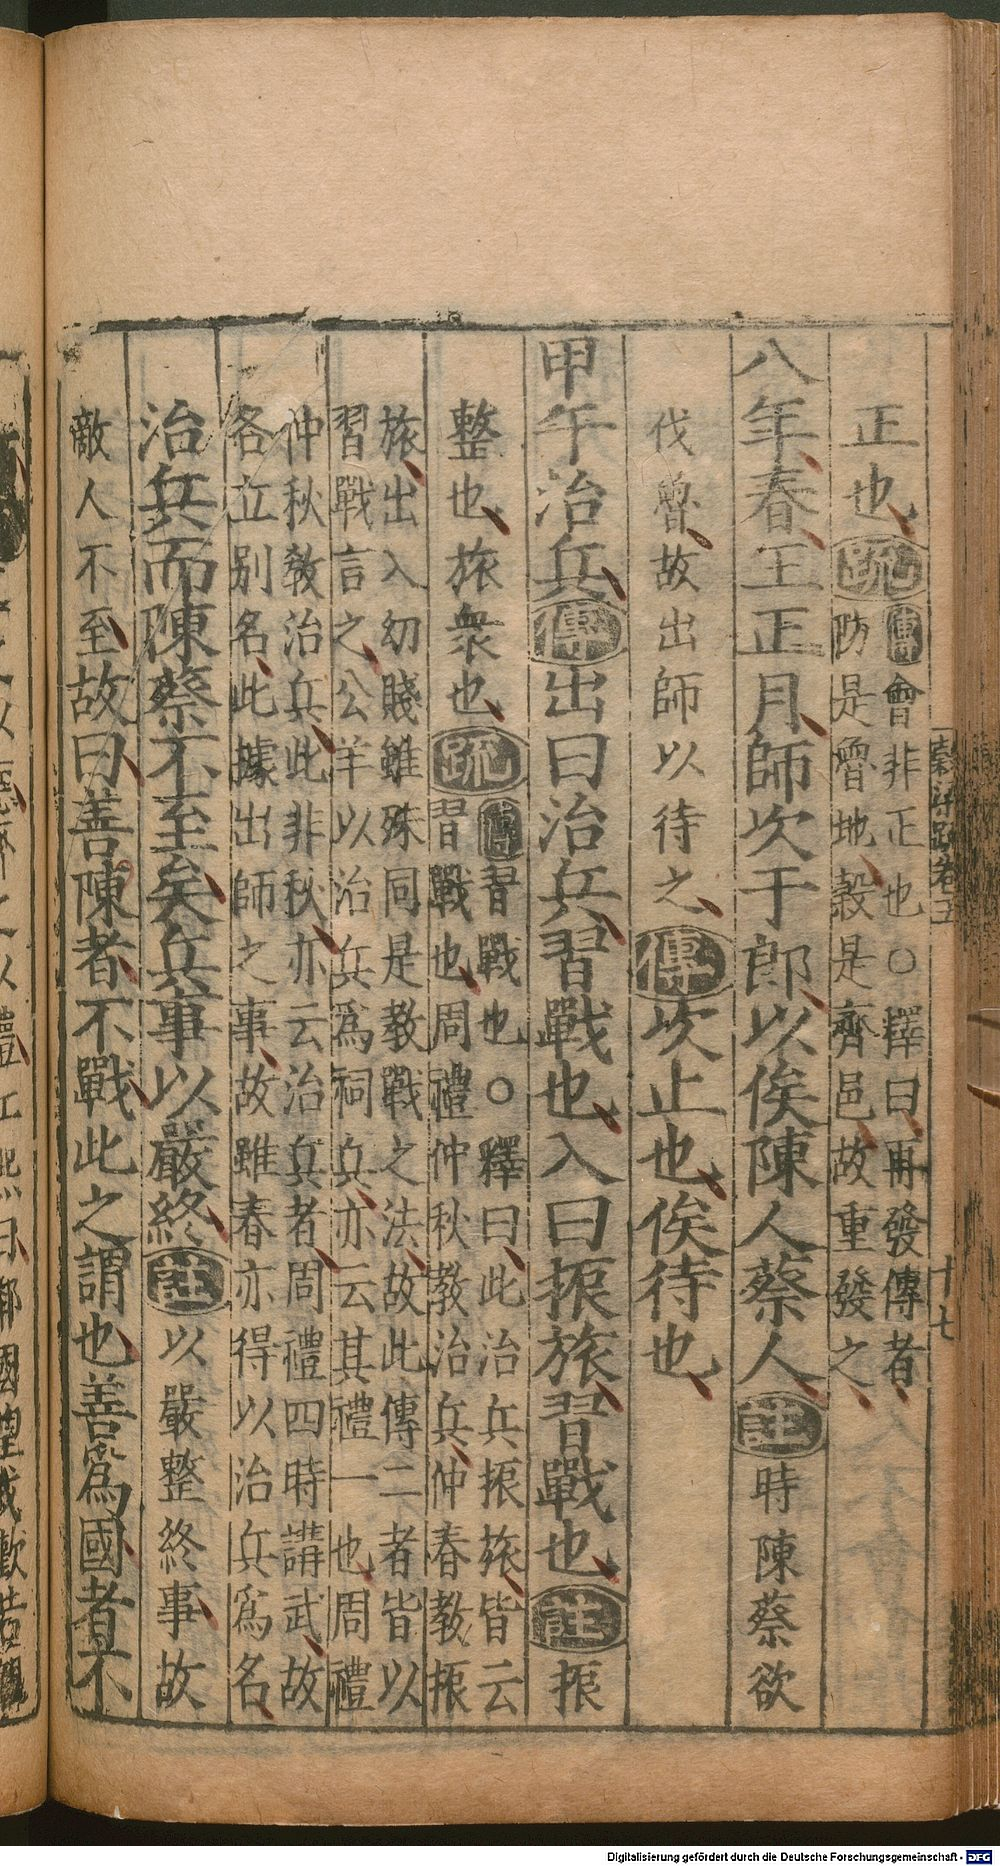 正也疏傳會非正也○釋曰再發傳者
防是魯地穀是齊邑故重發之
八年春王正月師次于郎以俟陳人蔡人註時陳蔡欲
伐魯故出師以待之傳次止也俟待也
甲午治兵傳出曰治兵習戰也入曰振旅習戰也註振
整也旅衆也疏傳習戰也○釋曰此治兵振旅皆云
習戰也周禮仲秋教治兵仲春教振
旅出入幼賤雖殊同是教戰之法故此傳二者皆以
習戰言之公羊以治兵爲祠兵亦云其禮一也周禮
仲秋教治兵此非秋亦云治兵者周禮四時講武故
各立別名此據出師之事故雖春亦得以治兵爲名
治兵而陳蔡不至矣兵事以嚴終註以嚴整終事故
敵人不至故曰善陳者不戰此之謂也善爲國者不
穀梁疏卷五
十七
Digitalisierung gefördert durch die Deutsche Forschungsgemeinschaft - DFG